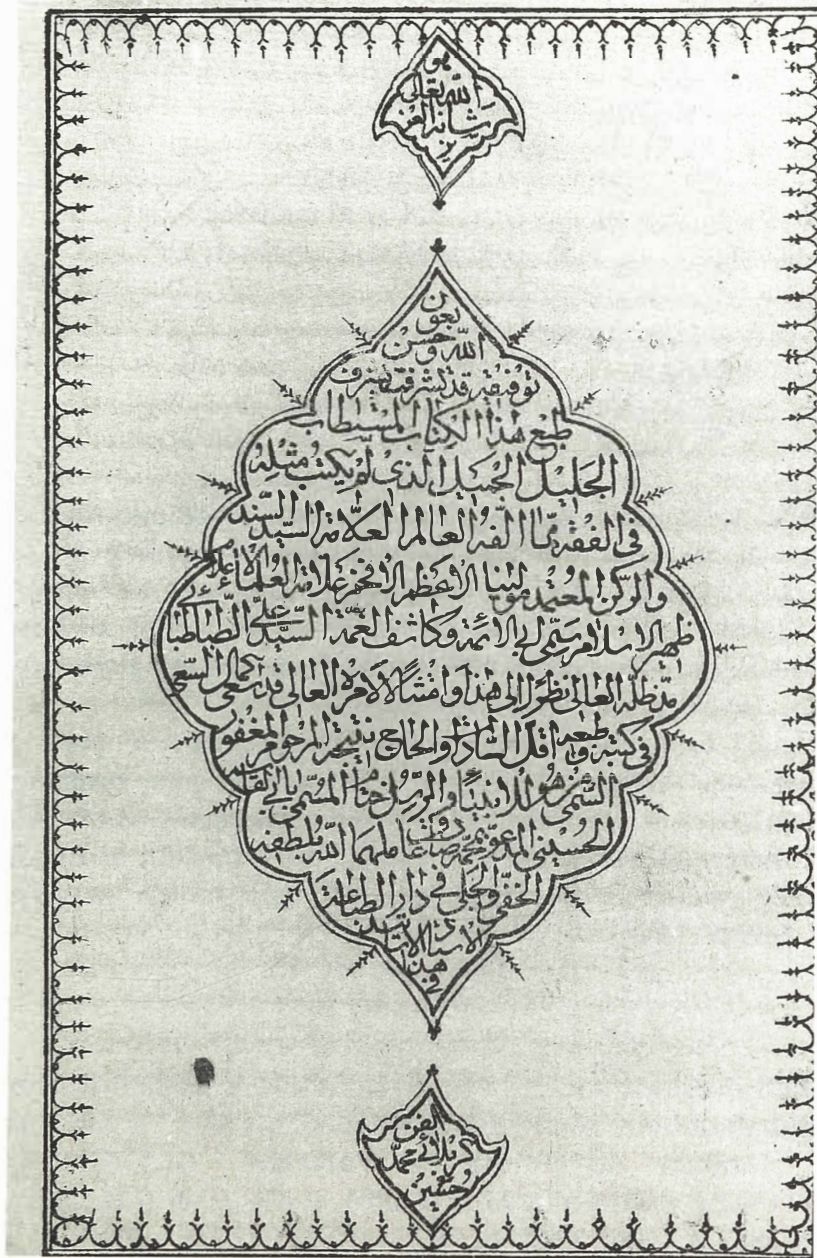 هو
الله تعالى
شانه العز
يز
بعون
الله و حسن
توفيقه قد تشرفت بشرف
طبع هذا الكتاب المستطاب
الجليل الجميل الذى لم يكتب مثله
فى الفقه مما الفه العالم العلامة السيد السند
والركن المعتمد مولينا الاعظم الافخم علامة العلماء الاعلام
ظهير الاسلام سمى ابى الائمة و كاشف الغمة السيد على الطباطبائى
مد ظله العالى نظرا الى هذا و امتثالا لامره العالى قد سعى كمال السعى
فى كتبه و طبعه اقل السادات و الحاج نتيجة المرحوم المغفور
السمى هو للانبياء و الرسل ختام المسمى بابى القاسم
الحسينى المدعو بمحمد صادق عاملهما الله بلطفه
الخفى و الجلى فى دار الطباعة
الاستاد الاستاد
فى هذا
الفن
كربلائى محمد
حسين